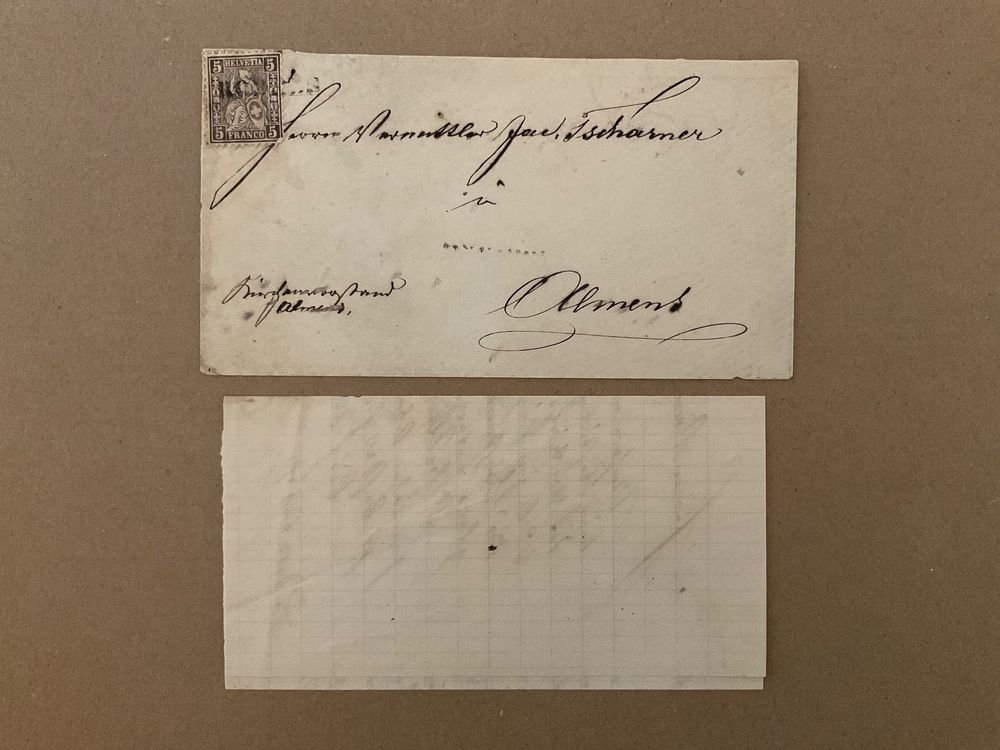 5 HELVETIA 5
5 FRANCO 5
Herrn Vermittler Jac. Tscharner
in
Almens
Kirchenvorstand
Almens.